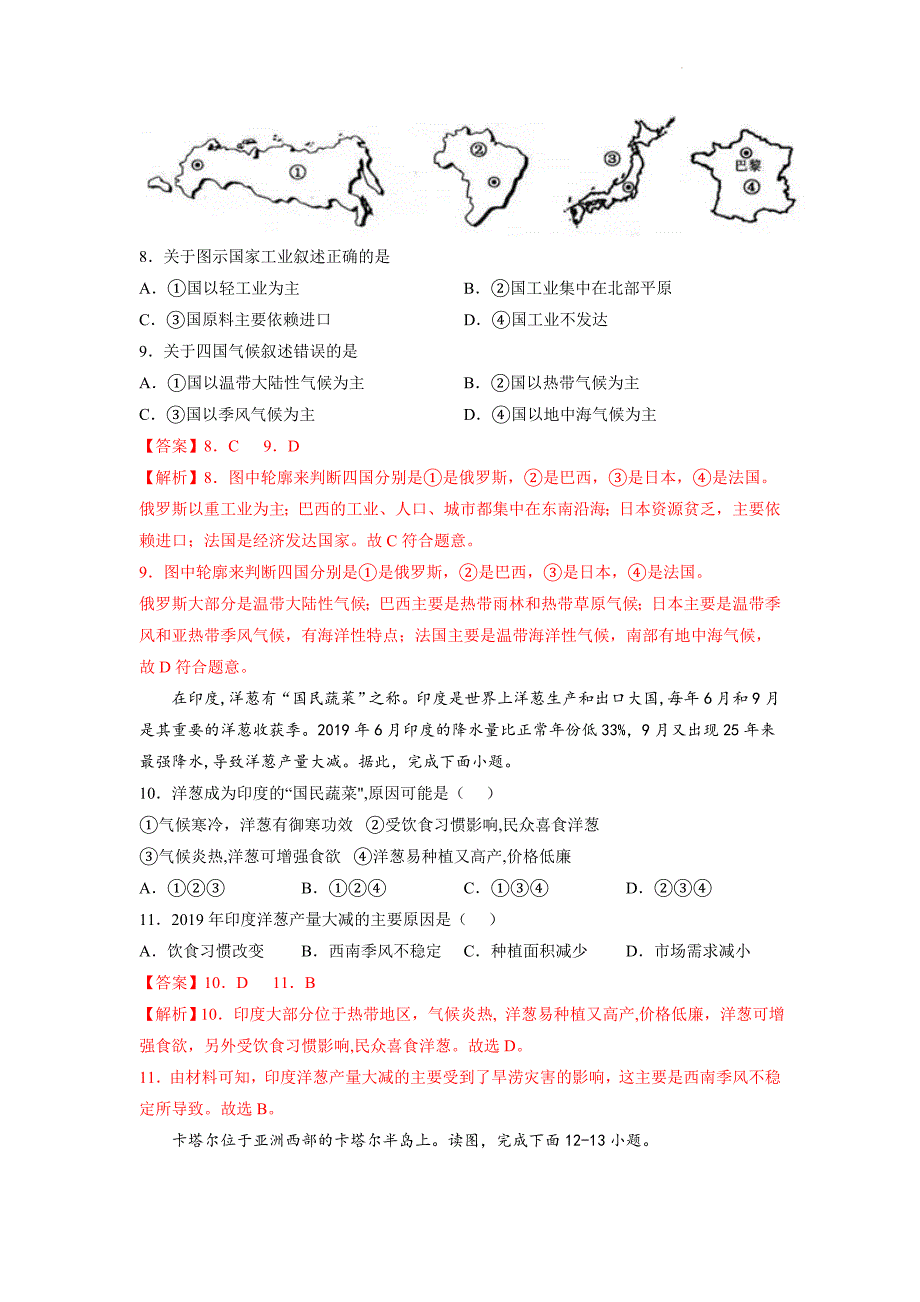 ① ② ③ 巴黎 ④
8．关于图示国家工业叙述正确的是
A．①国以轻工业为主 B．②国工业集中在北部平原
C．③国原料主要依赖进口 D．④国工业不发达
9．关于四国气候叙述错误的是
A．①国以温带大陆性气候为主 B．②国以热带气候为主
C．③国以季风气候为主 D．④国以地中海气候为主
【答案】8．C 9．D
【解析】8．图中轮廓来判断四国分别是①是俄罗斯，②是巴西，③是日本，④是法国。
俄罗斯以重工业为主；巴西的工业、人口、城市都集中在东南沿海；日本资源贫乏，主要依
赖进口；法国是经济发达国家。故 C 符合题意。
9．图中轮廓来判断四国分别是①是俄罗斯，②是巴西，③是日本，④是法国。
俄罗斯大部分是温带大陆性气候；巴西主要是热带雨林和热带草原气候；日本主要是温带季
风和亚热带季风气候，有海洋性特点；法国主要是温带海洋性气候，南部有地中海气候，
故 D 符合题意。
在印度,洋葱有“国民蔬菜”之称。印度是世界上洋葱生产和出口大国,每年 6 月和 9 月
是其重要的洋葱收获季。2019 年 6 月印度的降水量比正常年份低 33%，9 月又出现 25 年来
最强降水,导致洋葱产量大减。据此，完成下面小题。
10．洋葱成为印度的“国民蔬菜",原因可能是（ ）
①气候寒冷，洋葱有御寒功效 ②受饮食习惯影响,民众喜食洋葱
③气候炎热,洋葱可增强食欲 ④洋葱易种植又高产,价格低廉
A．①②③ B．①②④ C．①③④ D．②③④
11．2019 年印度洋葱产量大减的主要原因是（ ）
A．饮食习惯改变 B．西南季风不稳定 C．种植面积减少 D．市场需求减小
【答案】10．D 11．B
【解析】10．印度大部分位于热带地区，气候炎热, 洋葱易种植又高产,价格低廉，洋葱可增
强食欲，另外受饮食习惯影响,民众喜食洋葱。故选 D。
11．由材料可知，印度洋葱产量大减的主要受到了旱涝灾害的影响，这主要是西南季风不稳
定所导致。故选 B。
卡塔尔位于亚洲西部的卡塔尔半岛上。读图，完成下面 12-13 小题。